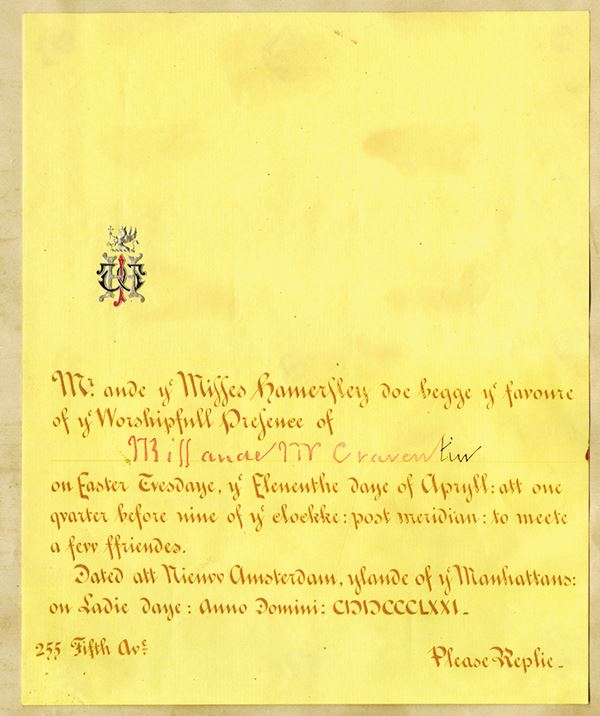 Mr. ande ye Misses Hamersley doe begge ye favoure
of ye Worshipfull Presence of
Miss ande Mr Craven
on Easter Tvesdaye, ye Elenenthe daye of Apryll: att one
qvarter before nine of ye clockke: post meridian: to meete
a fevv ffriendes.
Dated att Nieuvv Amsterdam, ylande of ye Manhattans:
on Ladie daye: Anno Domini: CIƆIƆCCCLXXI_
255 Fifth Ave.
Please Replie_